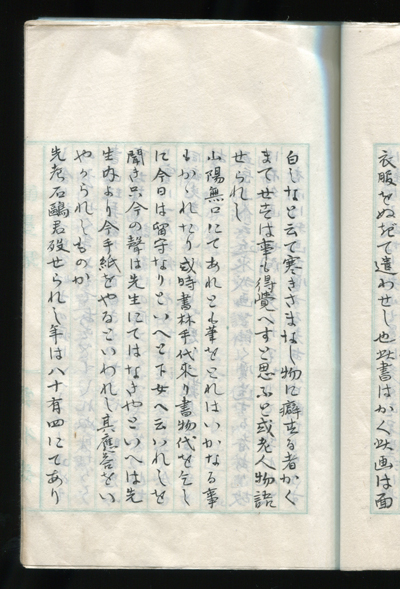 衣服をぬぎて遣わせし也此書はかく此画は面
白しなと云て寒きさまなし物に癖ある者かく
まてせすは事も得覚へすと思ふと或老人物語
せられし
小陽無口にてあれと筆をとれはいかなる事
もかゝれたり或時書林手代来り書物代を乞し
に今日は留守なりといへと下女へ云いれしを
聞き只今の聲は先生にてはなきやといへは先
生内より今手紙をやるといわれし其應答をい
やかられしものか
先考石鷗君歿せられし年は八十有四にてあり